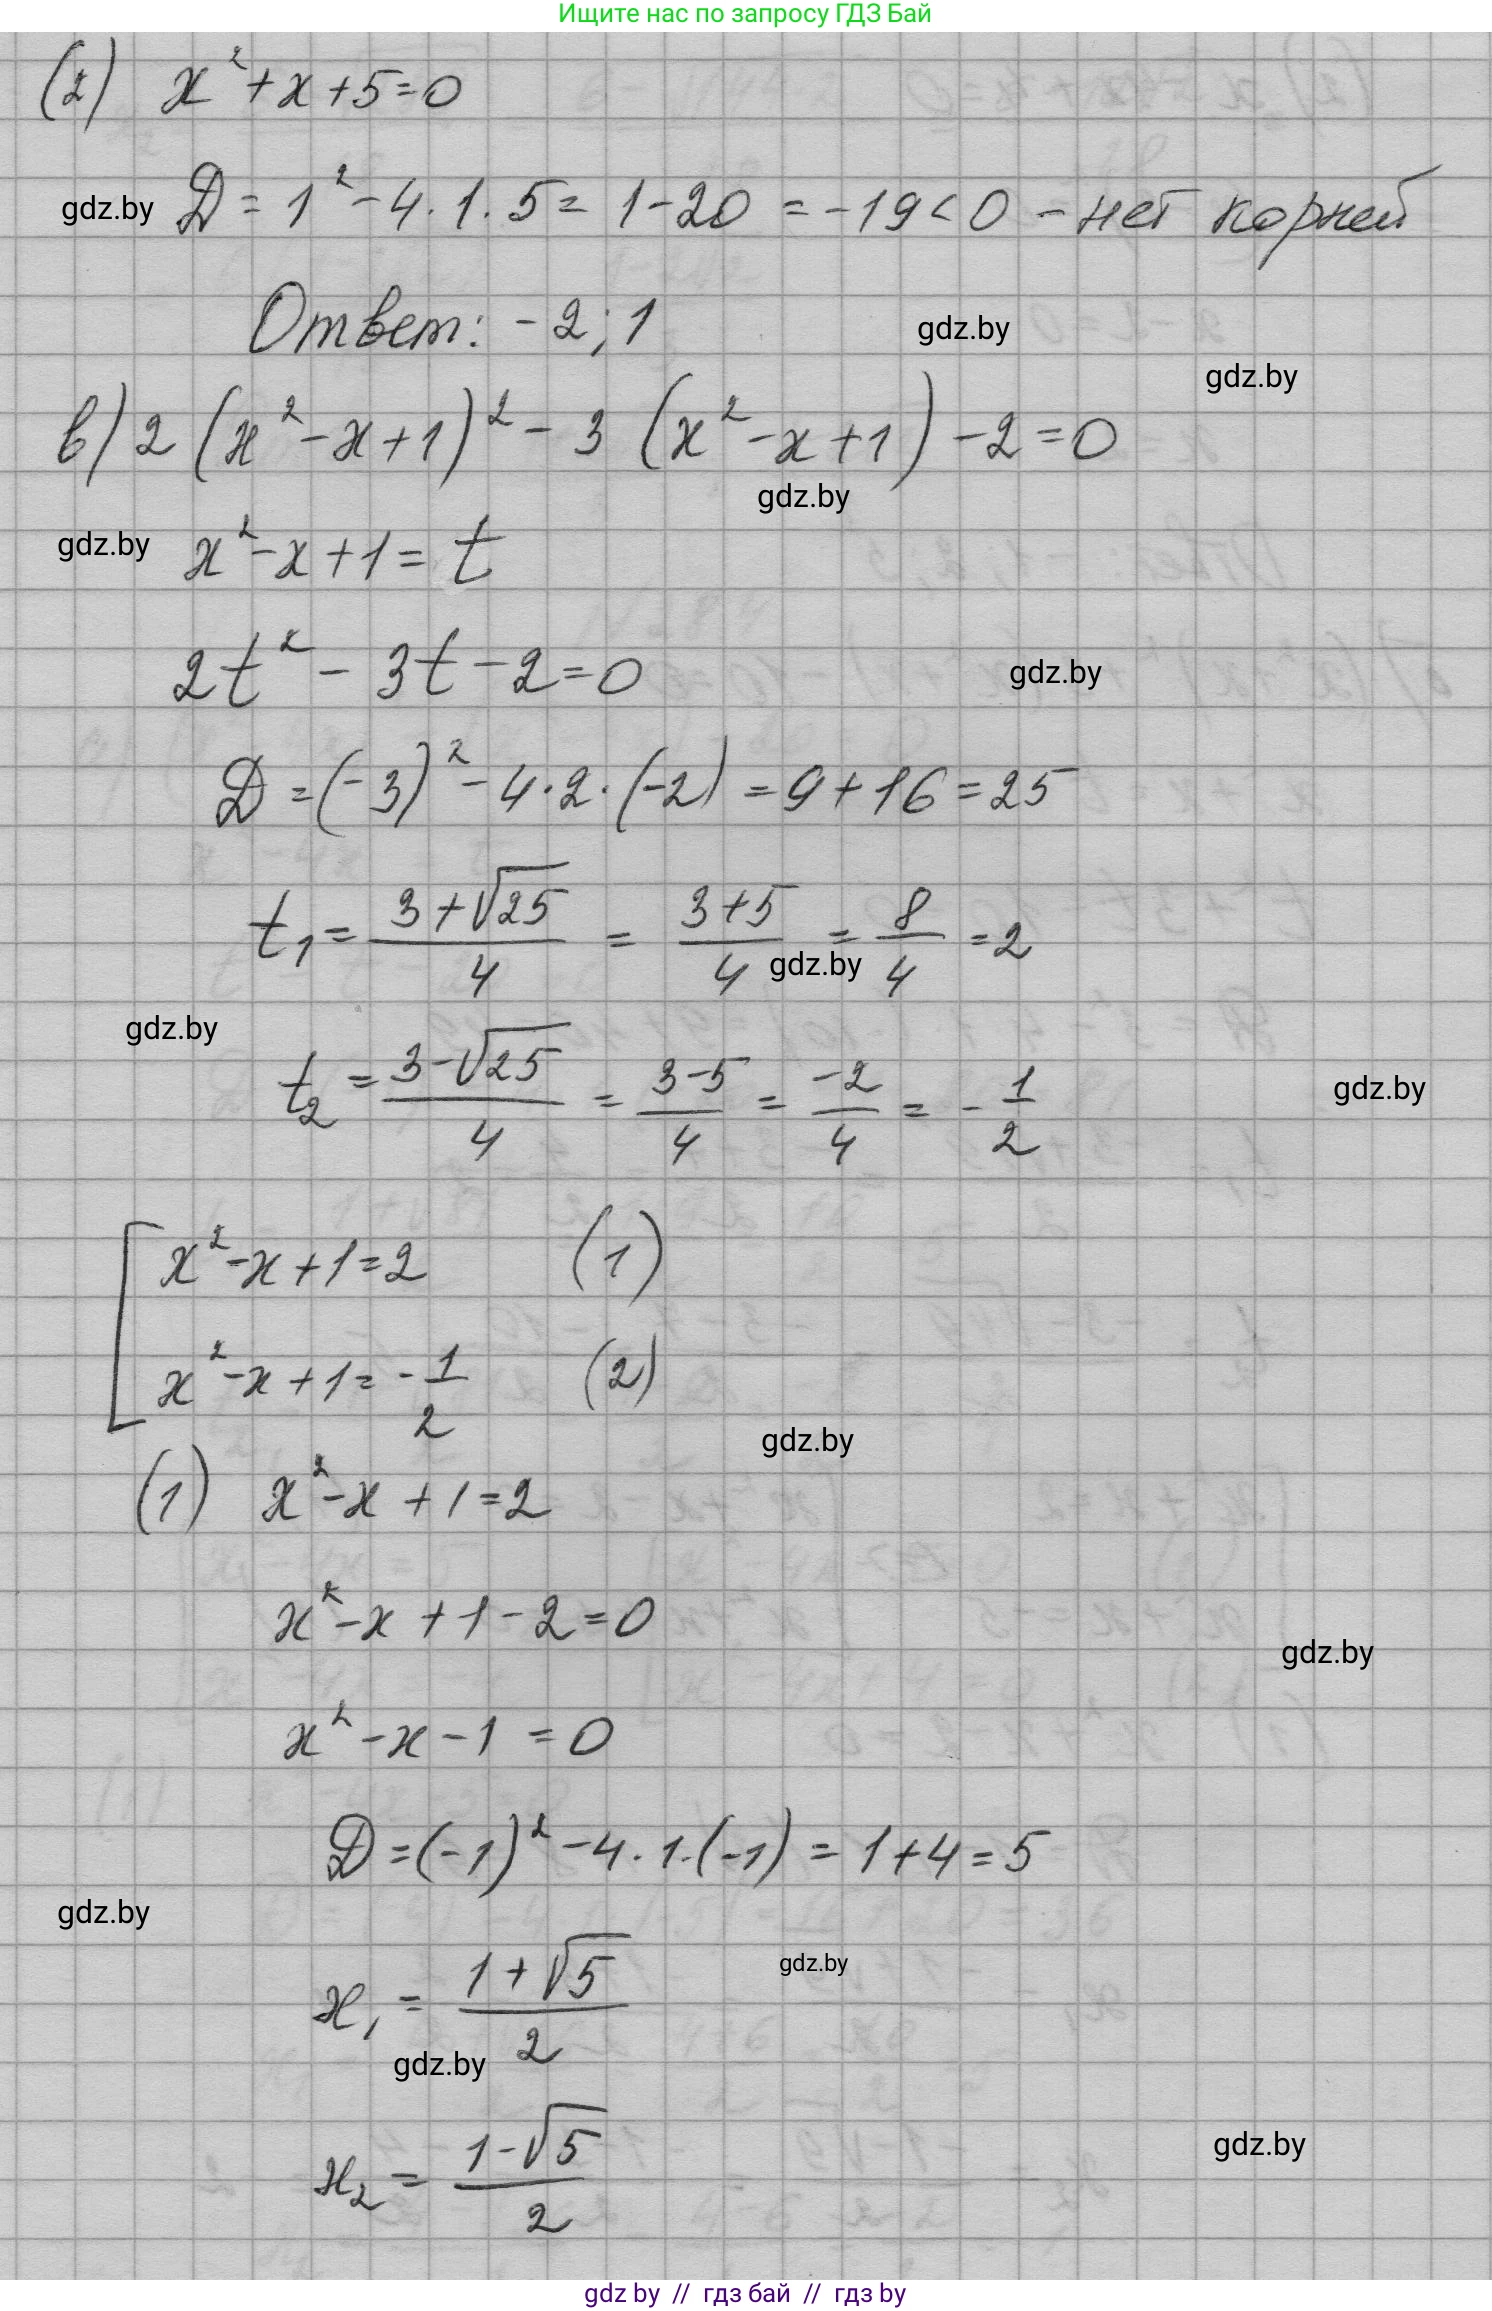 Ищите нас по запросу ГДЗ Бай
(2) x² + x + 5 = 0
gdz.by D = 1² - 4 · 1 · 5 = 1 - 20 = -19 < 0 - нет корней
Ответ: -2; 1
gdz.by
gdz.by
в) 2 (x² - x + 1)² - 3 (x² - x + 1) - 2 = 0
gdz.by
gdz.by x² - x + 1 = t
2t² - 3t - 2 = 0
gdz.by
D = (-3)² - 4 · 2 · (-2) = 9 + 16 = 25
t₁ = (3 + √25)/4 = (3 + 5)/4 = 8/4 = 2
gdz.by
gdz.by
t₂ = (3 - √25)/4 = (3 - 5)/4 = -2/4 = -1/2
gdz.by
[ x² - x + 1 = 2 (1)
x² - x + 1 = -1/2 (2)
gdz.by
(1) x² - x + 1 = 2
x² - x + 1 - 2 = 0
gdz.by
x² - x - 1 = 0
D = (-1)² - 4 · 1 · (-1) = 1 + 4 = 5
gdz.by
x₁ = (1 + √5)/2
gdz.by
gdz.by
x₂ = (1 - √5)/2
gdz.by
gdz by // гдз бай // гдз by